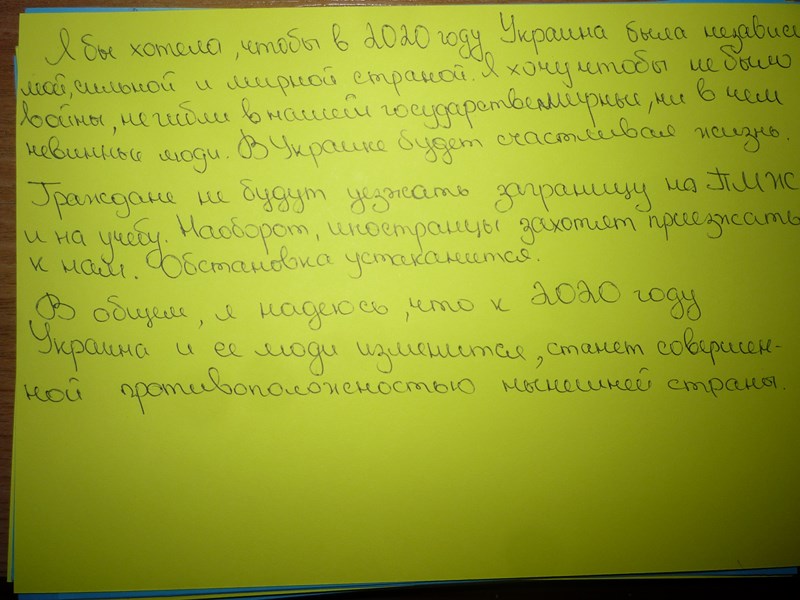 Я бы хотела, чтобы в 2020 году Украина была независи
мой, сильной и мирной страной. Я хочу чтобы не было
войны, не гибли в нашей государстве мирные, ни в чем
невинные люди. В Украине будет счастливая жизнь.
Граждане не будут уезжать заграницу на ПМЖ
и на учебу. Наоборот, иностранцы захотят приезжать
к нам. Обстановка устаканится.
В общем, я надеюсь, что к 2020 году
Украина и ее люди изменится, станет совершен-
ной противоположностью нынешней страны.